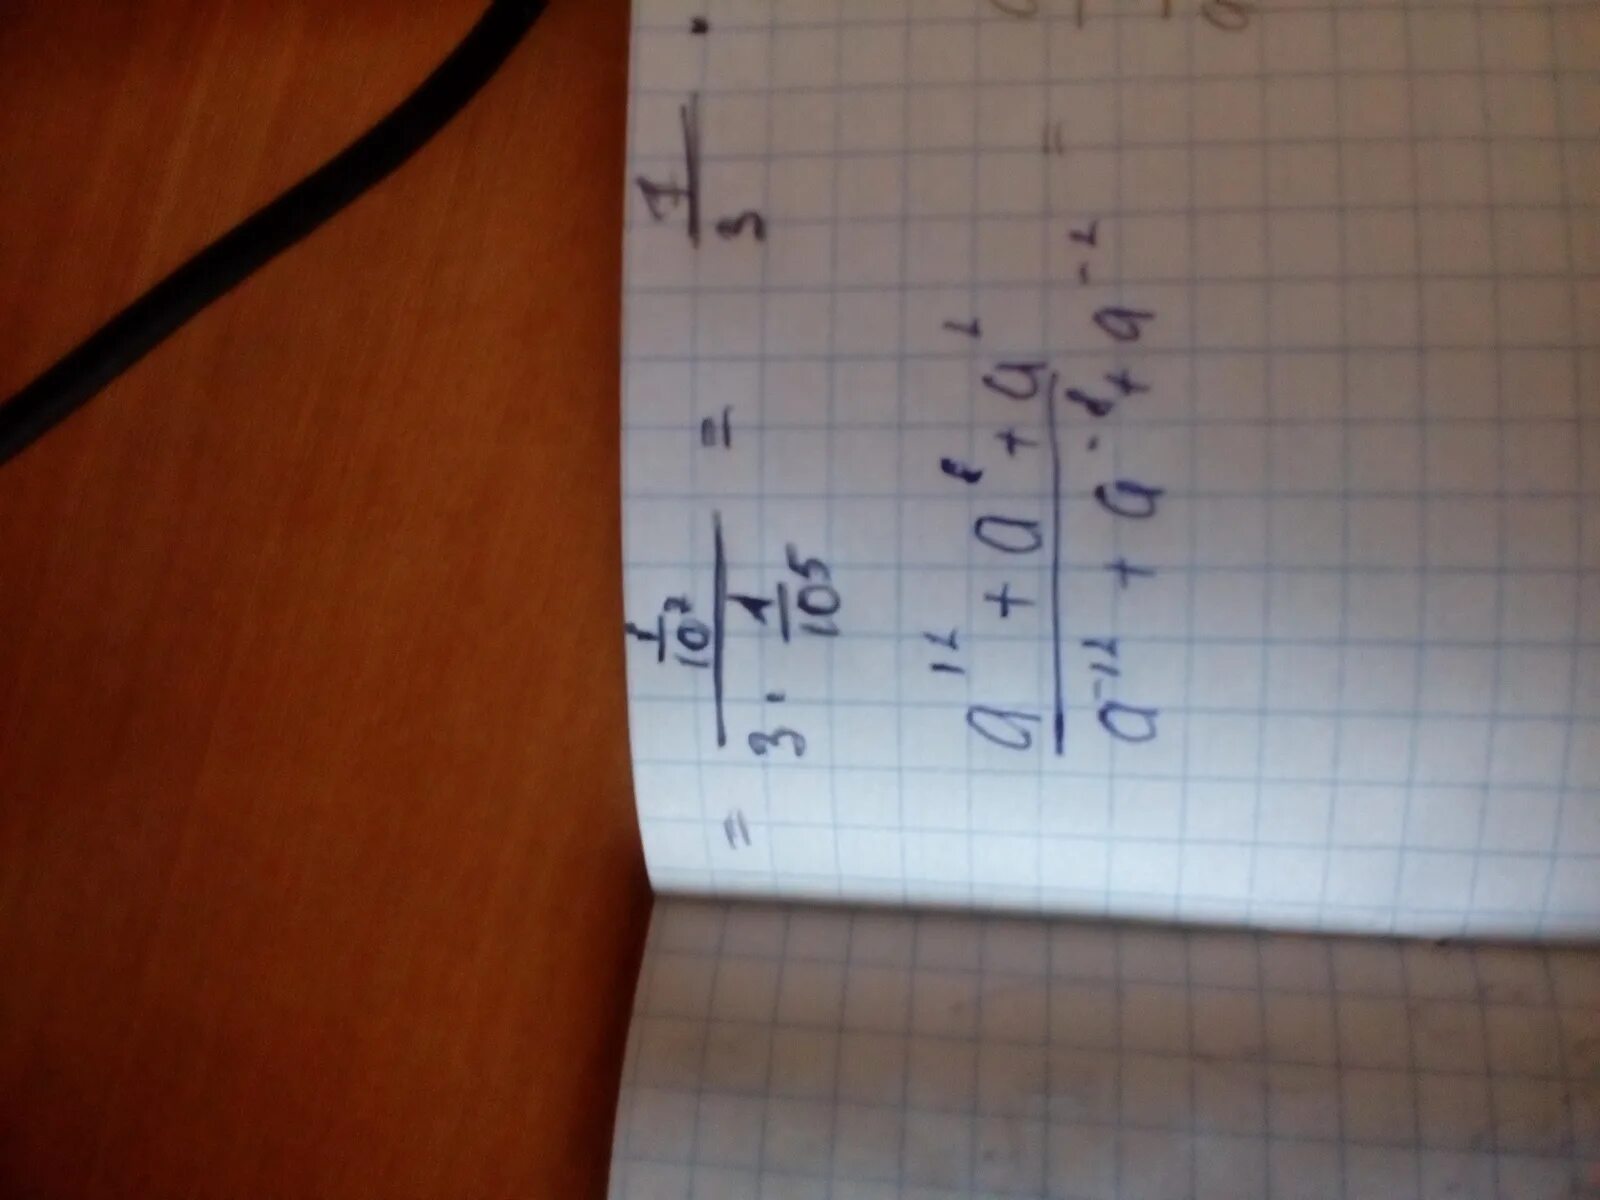 = (1/10⁷)/(3 · 1/10⁵) = 1/3 ·
(a¹² + a⁸ + a²)/(a⁻¹² + a⁻⁸ + a⁻²) =